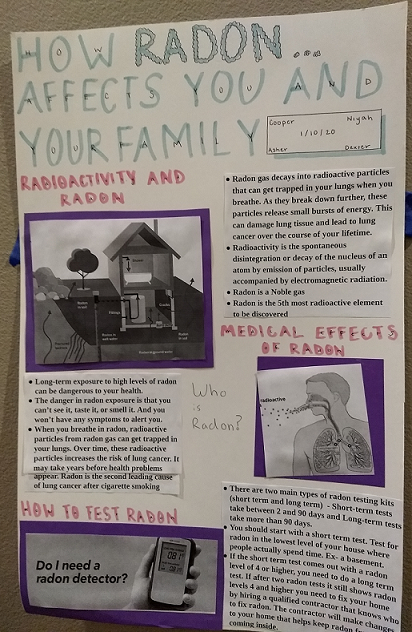 HOW RADON...
AFFECTS YOU AND
YOUR FAMILY
Cooper Niyah
1/10/20
Asher Dexter
RADIOACTIVITY AND
RADON
• Radon gas decays into radioactive particles
that can get trapped in your lungs when you
breathe. As they break down further, these
particles release small bursts of energy. This
can damage lung tissue and lead to lung
cancer over the course of your lifetime.
• Radioactivity is the spontaneous
disintegration or decay of the nucleus of an
atom by emission of particles, usually
accompanied by electromagnetic radiation.
• Radon is a Noble gas
• Radon is the 5th most radioactive element
to be discovered
MEDICAL EFFECTS
OF RADON
radioactive
• Long-term exposure to high levels of radon
can be dangerous to your health.
• The danger in radon exposure is that you
can't see it, taste it, or smell it. And you
won't have any symptoms to alert you.
• When you breathe in radon, radioactive
particles from radon gas can get trapped in
your lungs. Over time, these radioactive
particles increases the risk of lung cancer. It
may take years before health problems
appear. Radon is the second leading cause
of lung cancer after cigarette smoking
Who
is
Radon?
HOW TO TEST RADON
Do I need a
radon detector?
• There are two main types of radon testing kits
(short term and long term) - Short-term tests
take between 2 and 90 days and Long-term tests
take more than 90 days.
• You should start with a short term test. Test for
radon in the lowest level of your house where
people actually spend time. Ex- a basement.
• If the short term test comes out with a radon
level of 4 or higher, you need to do a long term
test. If after two radon tests it still shows radon
levels 4 and higher you need to fix your home
by hiring a qualified contractor that knows who
to fix radon. The contractor will make changes
to your home that helps keep radon from
coming inside.